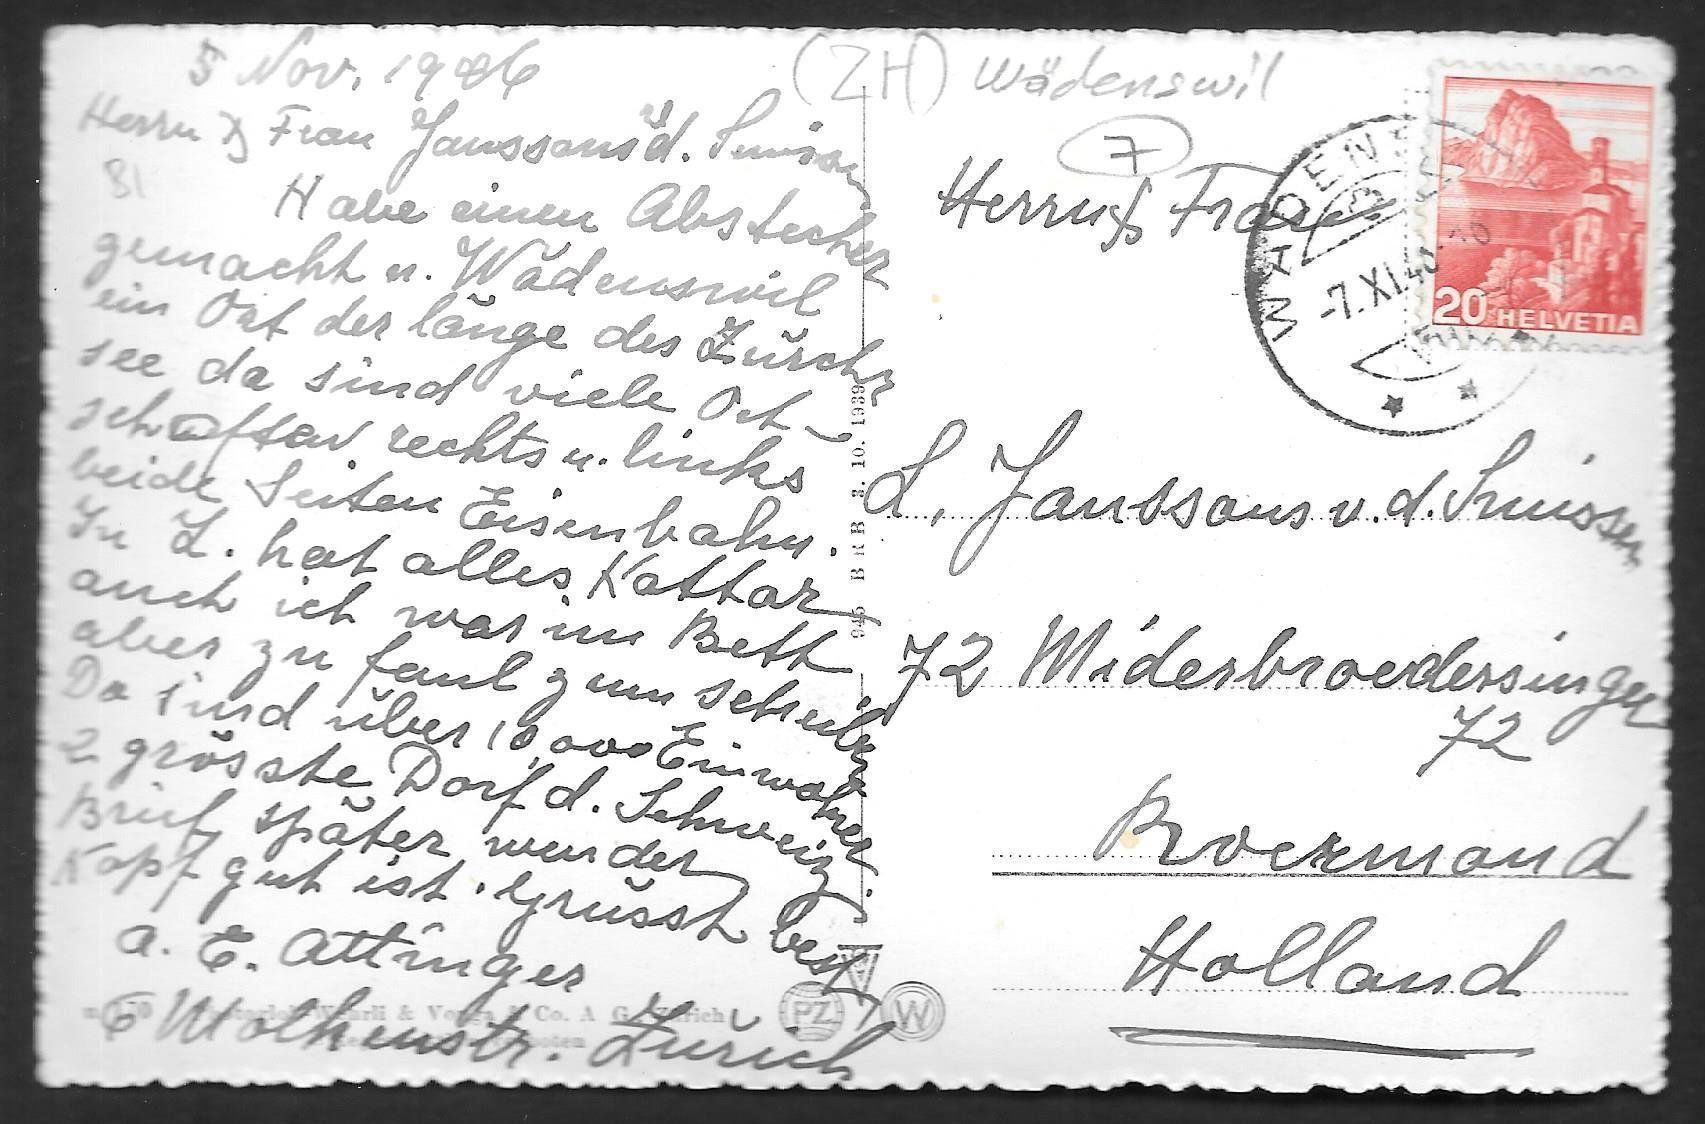 5 Nov. 1946
Herrn & Frau Janssons v. d. Smissen
81
Habe einen Abstecher
gemacht n. Wädenswil
ein Ort der länge des Zürch
see da sind viele Ort-
schaften rechts u. links
beide Seiten Eisenbahn.
In Z. hat alles Kattar
auch ich war im Bett
aber zu faul zum schreiben
Da sind über 10,000 Einwohner
2 grösste Dorf d. Schweiz.
Brief später wen der
Kopf gut ist. Grüsst best
A. E. Attinger
6 Molkenstr. Zürich
945 BRB 3. 10. 1939
PZ
W
(ZH) Wädenswil
7
WÄDENSWIL
-7.XI.46.-16
20 HELVETIA
Herrn & Frau
L. Janssons v. d. Smissen
72 Miderbroedersingel
72
Roermond
Holland